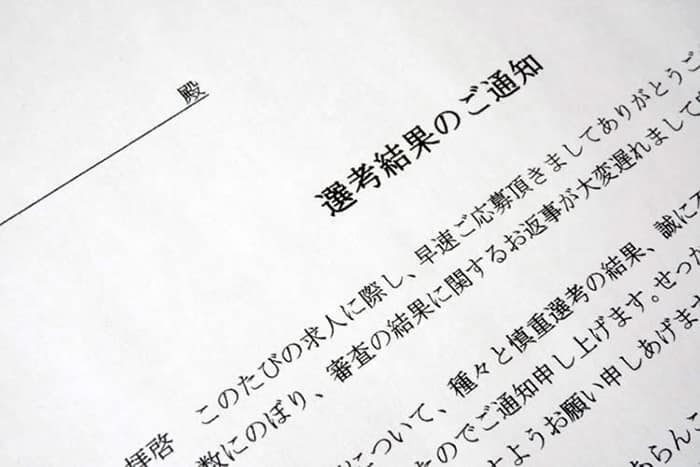 殿
選考結果のご通知
拝啓　このたびの求人に際し、早速ご応募頂きましてありがとうご
数にのぼり、審査の結果に関するお返事が大変遅れまして
について、種々と慎重選考の結果、誠に
たのでご通知申し上げます。せっか
すようお願い申しあげます
あらんこ